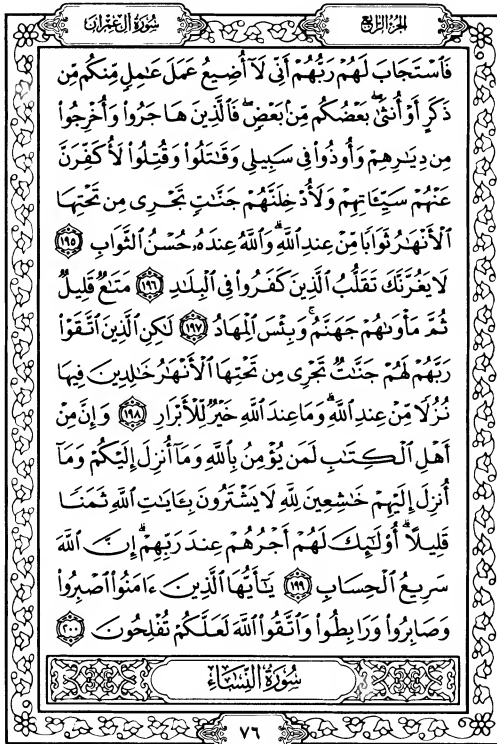 الجزء الرابع
سورة آل عمران
فَٱسْتَجَابَ لَهُمْ رَبُّهُمْ أَنِّى لَآ أُضِيعُ عَمَلَ عَٰمِلٍ مِّنكُم مِّن
ذَكَرٍ أَوْ أُنثَىٰ ۖ بَعْضُكُم مِّنۢ بَعْضٍ ۖ فَٱلَّذِينَ هَاجَرُوا۟ وَأُخْرِجُوا۟
مِن دِيَٰرِهِمْ وَأُوذُوا۟ فِى سَبِيلِى وَقَٰتَلُوا۟ وَقُتِلُوا۟ لَأُكَفِّرَنَّ
عَنْهُمْ سَيِّـَٔاتِهِمْ وَلَأُدْخِلَنَّهُمْ جَنَّٰتٍ تَجْرِى مِن تَحْتِهَا
ٱلْأَنْهَٰرُ ثَوَابًا مِّنْ عِندِ ٱللَّهِ ۗ وَٱللَّهُ عِندَهُۥ حُسْنُ ٱلثَّوَابِ ١٩٥
لَا يَغُرَّنَّكَ تَقَلُّبُ ٱلَّذِينَ كَفَرُوا۟ فِى ٱلْبِلَٰدِ ١٩٦ مَتَٰعٌ قَلِيلٌ
ثُمَّ مَأْوَىٰهُمْ جَهَنَّمُ ۚ وَبِئْسَ ٱلْمِهَادُ ١٩٧ لَٰكِنِ ٱلَّذِينَ ٱتَّقَوْا۟
رَبَّهُمْ لَهُمْ جَنَّٰتٌ تَجْرِى مِن تَحْتِهَا ٱلْأَنْهَٰرُ خَٰلِدِينَ فِيهَا
نُزُلًا مِّنْ عِندِ ٱللَّهِ ۗ وَمَا عِندَ ٱللَّهِ خَيْرٌ لِّلْأَبْرَارِ ١٩٨ وَإِنَّ مِنْ
أَهْلِ ٱلْكِتَٰبِ لَمَن يُؤْمِنُ بِٱللَّهِ وَمَآ أُنزِلَ إِلَيْكُمْ وَمَآ
أُنزِلَ إِلَيْهِمْ خَٰشِعِينَ لِلَّهِ لَا يَشْتَرُونَ بِـَٔايَٰتِ ٱللَّهِ ثَمَنًا
قَلِيلًا ۗ أُو۟لَٰٓئِكَ لَهُمْ أَجْرُهُمْ عِندَ رَبِّهِمْ ۗ إِنَّ ٱللَّهَ
سَرِيعُ ٱلْحِسَابِ ١٩٩ يَٰٓأَيُّهَا ٱلَّذِينَ ءَامَنُوا۟ ٱصْبِرُوا۟
وَصَابِرُوا۟ وَرَابِطُوا۟ وَٱتَّقُوا۟ ٱللَّهَ لَعَلَّكُمْ تُفْلِحُونَ ٢٠٠
سُورَةُ النِّسَاءِ
٧٦